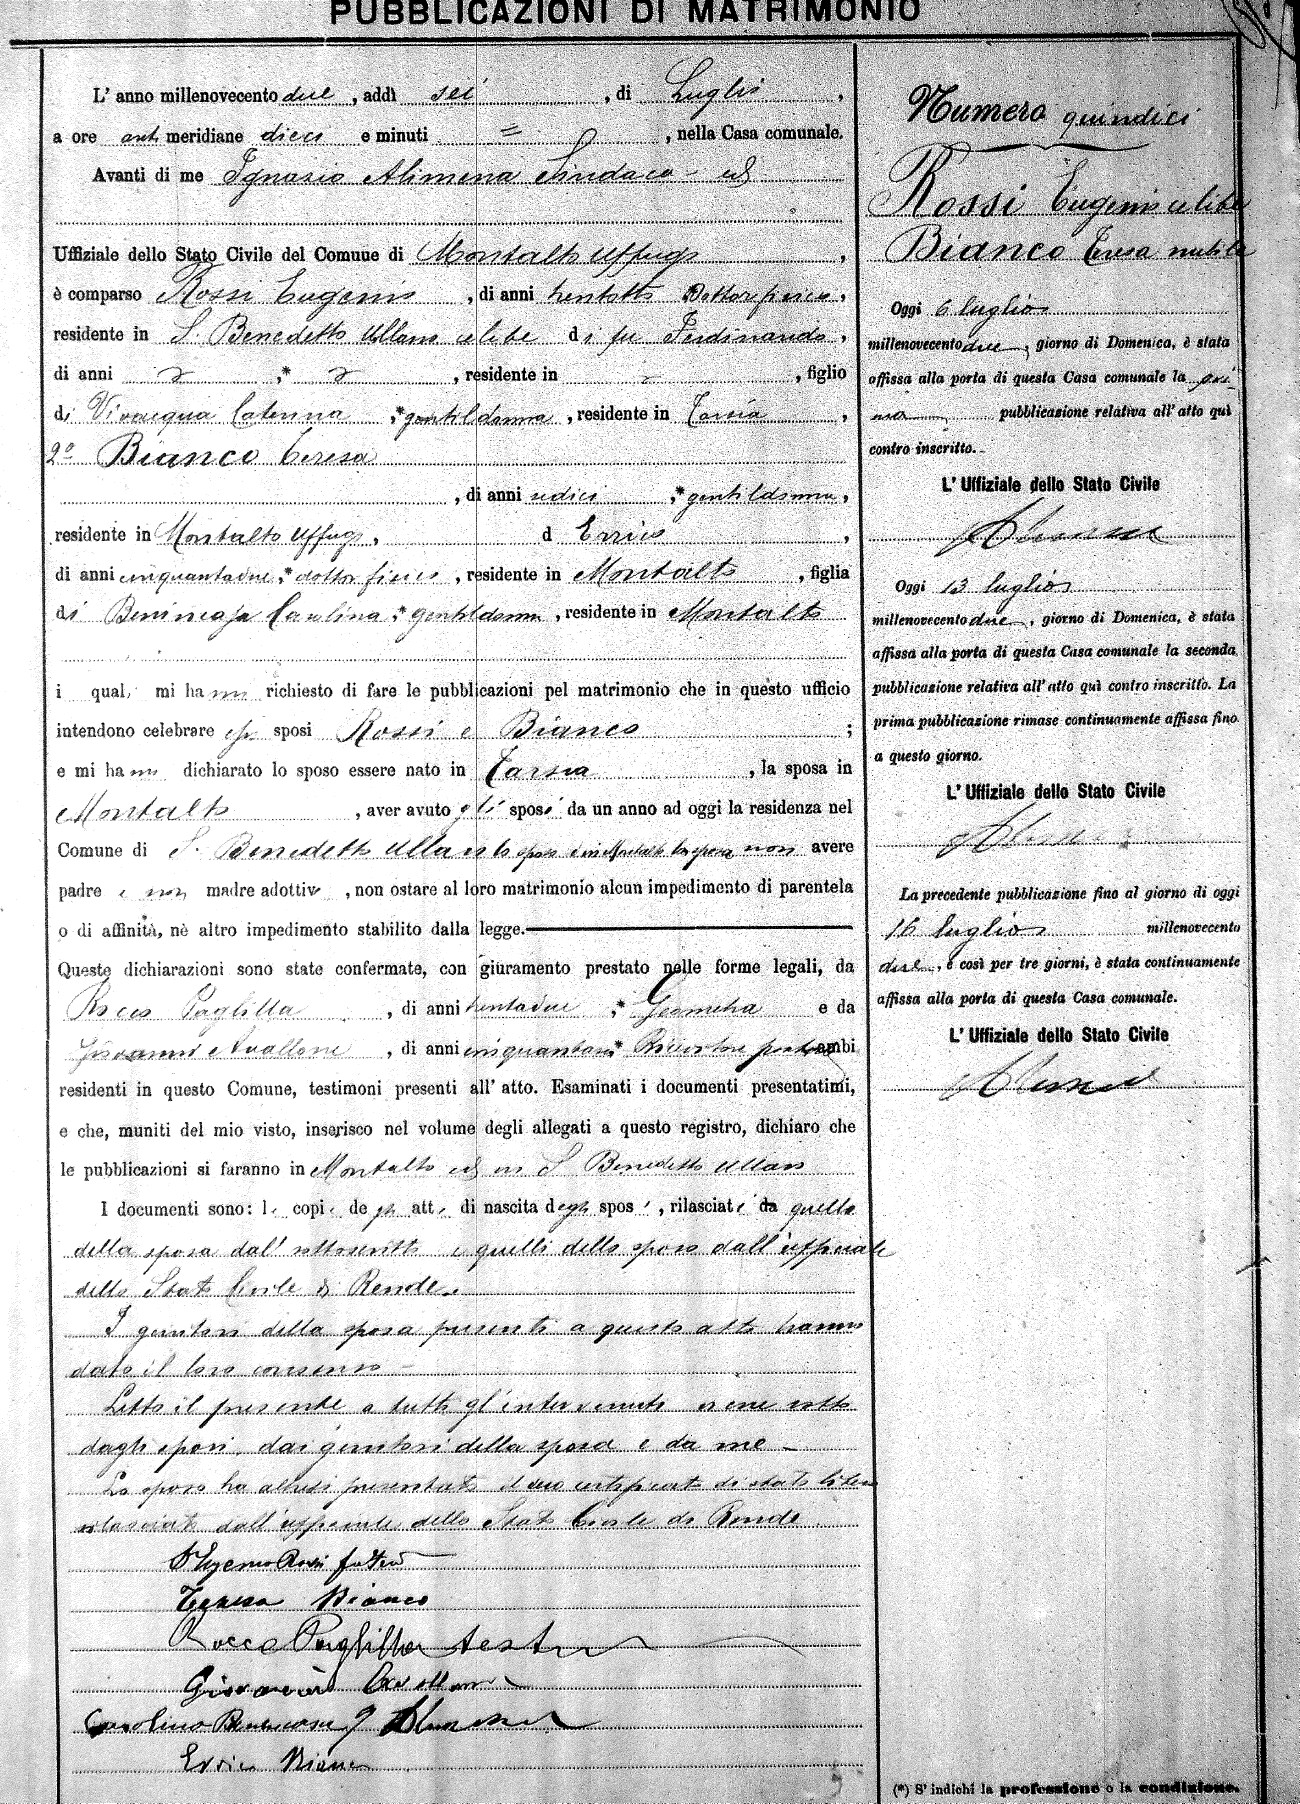 PUBBLICAZIONI DI MATRIMONIO
L' anno millenovecento due, addì sei, di Luglio,
a ore anti meridiane dieci e minuti =, nella Casa comunale.
Avanti di me Ignazio Alimena Sindaco ed
Uffiziale dello Stato Civile del Comune di Montalto Uffugo,
è comparso Rossi Eugenio, di anni trentotto Dottor fisico,
residente in S. Benedetto Ullano celibe di fu Ferdinando,
di anni ,* , residente in , figlio
di Vivacqua Caterina,* gentildonna, residente in Tarsia,
2º Bianco Teresa
, di anni sedici,* gentildonna,
residente in Montalto Uffugo, d Errico,
di anni cinquantadue,* dottor fisico, residente in Montalto, figlia
di Benincasa Carolina,* gentildonna, residente in Montalto
i quali mi hanno richiesto di fare le pubblicazioni pel matrimonio che in questo ufficio
intendono celebrare essi sposi Rossi e Bianco ;
e mi hanno dichiarato lo sposo essere nato in Tarsia, la sposa in
Montalto, aver avuto gli sposi da un anno ad oggi la residenza nel
Comune di S. Benedetto Ullano lo sposo e in Montalto la sposa non avere
padre e non madre adottivi, non ostare al loro matrimonio alcun impedimento di parentela
o di affinità, nè altro impedimento stabilito dalla legge.
Queste dichiarazioni sono state confermate, con giuramento prestato nelle forme legali, da
Rocco Paglilla, di anni trentadue,* Geometra e da
Giovanni Avallone, di anni * Ricevitore ambi
residenti in questo Comune, testimoni presenti all' atto. Esaminati i documenti presentatimi,
e che, muniti del mio visto, inserisco nel volume degli allegati a questo registro, dichiaro che
le pubblicazioni si faranno in Montalto ed in S Benedetto Ullano
I documenti sono: le copie de gli atti di nascita degli sposi, rilasciate da quello
della sposa dal sottoscritto e quelli dello sposo dall'uffiziale
dello Stato Civile di Rende.
I genitori della sposa presenti a questo atto hanno
dato il loro consenso
Letto il presente a tutti gl'intervenuti viene sotto
dagli sposi, dai genitori della sposa e da me
Lo sposo ha altresì presentato il suo certificato di stato libero
rilasciato dall'uffiziale dello Stato Civile di Rende
Eugenio Rossi fu
Teresa Bianco
Rocco Paglilla teste
Giovanni Avallone
Carolina Benincasa I Alimena
Errico Bianco
Numero quindici
Rossi Eugenio celibe
Bianco Teresa nubile
Oggi 6 luglio
millenovecento due, giorno di Domenica, è stata
affissa alla porta di questa Casa comunale la pri-
ma pubblicazione relativa all'atto quì
contro inscritto.
L' Uffiziale dello Stato Civile
Alimena
Oggi 13 luglio
millenovecento due, giorno di Domenica, è stata
affissa alla porta di questa Casa comunale la seconda
pubblicazione relativa all'atto quì contro inscritto. La
prima pubblicazione rimase continuamente affissa fino
a questo giorno.
L' Uffiziale dello Stato Civile
Alimena
La precedente pubblicazione fino al giorno di oggi
16 luglio millenovecento
due, e così per tre giorni, è stata continuamente
affissa alla porta di questa Casa comunale.
L' Uffiziale dello Stato Civile
Alimena
(*) S' indichi la professione o la condizione.